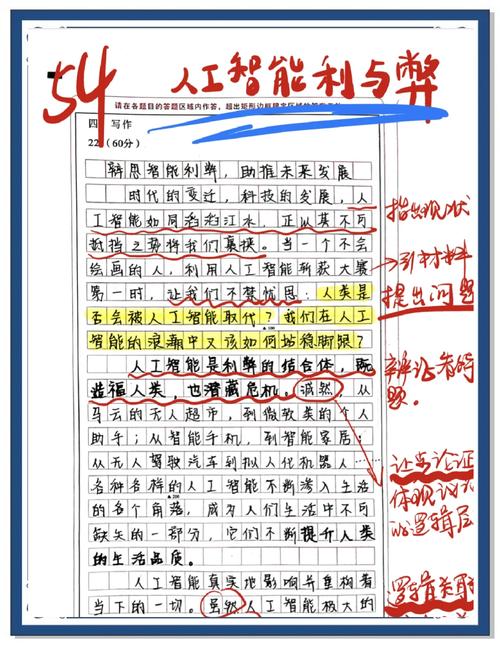 54 人工智能利与弊
请在各题目的答题区域内作答，超出矩形边框限定区域的答案无效
四 写作
22（60分）
辩思智能利弊，助推未来发展
时代的变迁，科技的发展，人
工智能如同滔滔江水，正以其不可
抵挡之势将我们裹挟。当一个不会
绘画的人，利用人工智能斩获大赛
第一时，让我们不禁忧思：人类是
否会被人工智能取代？我们在人工
智能的浪潮中又该如何站稳脚跟？
人工智能是利弊的结合体，既
造福人类，也潜藏危机。诚然，从
马云的无人超市，到微软类的个人
助手；从智能手机，到智能家居；
从无人驾驶汽车到拟人化机器人……
各种各样的人工智能不断渗入生活
的各个角落，成为人们生活中不可
缺失的一部分，它们不断提升人类
的生活品质。
人工智能真实地影响并重构着
当下的一切。虽然人工智能极大的
指出现状
引材料
提出问题
辩证看待
题。
让步论证
体现议
的逻辑层
逻辑关联